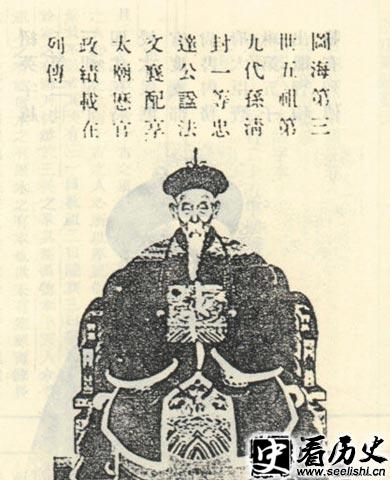 圖海第三
世五祖第
九代孫清
封一等忠
達公諡法
文襄配享
太廟歷官
政績載在
列傳
史 看历史
www.seelishi.cn